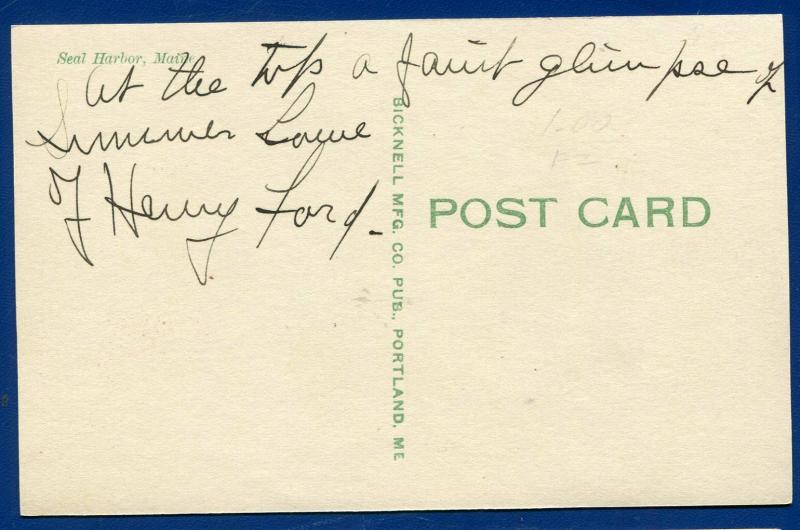 Seal Harbor, Maine
At the top a faint glimpse of
Summer home
of Henry Ford.
1-00
BICKNELL MFG. CO. PUB., PORTLAND, ME
POST CARD